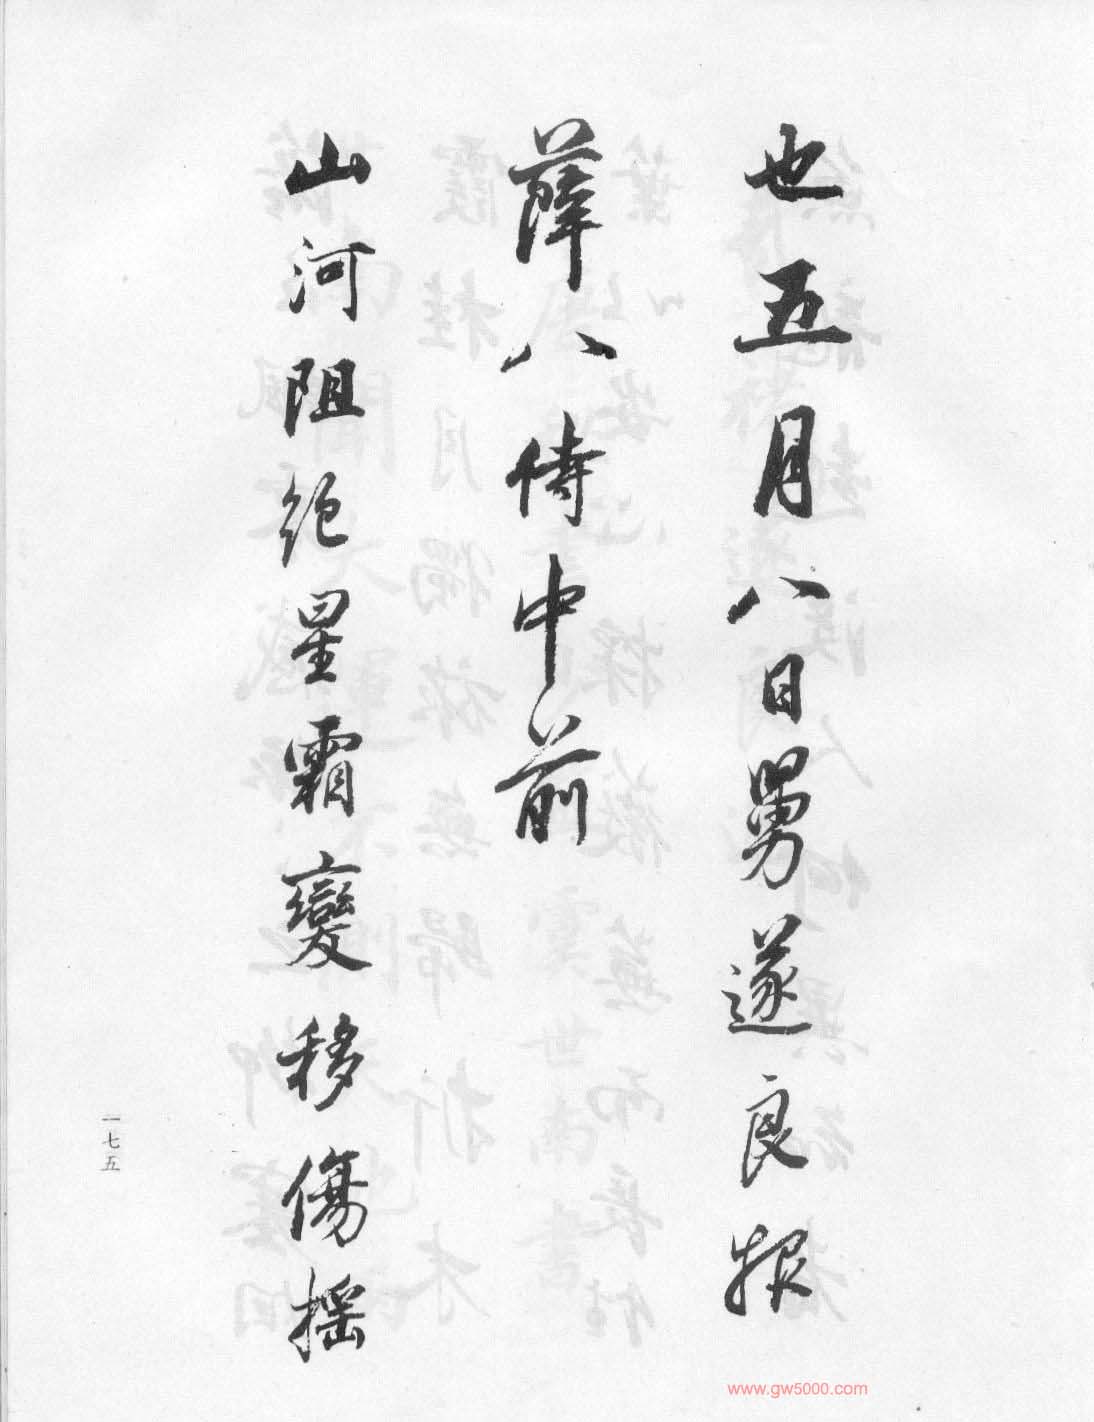 也五月八日舅遂良报
薛八侍中前
山河阻绝星霜變移傷摇
一七五
www.gw5000.com